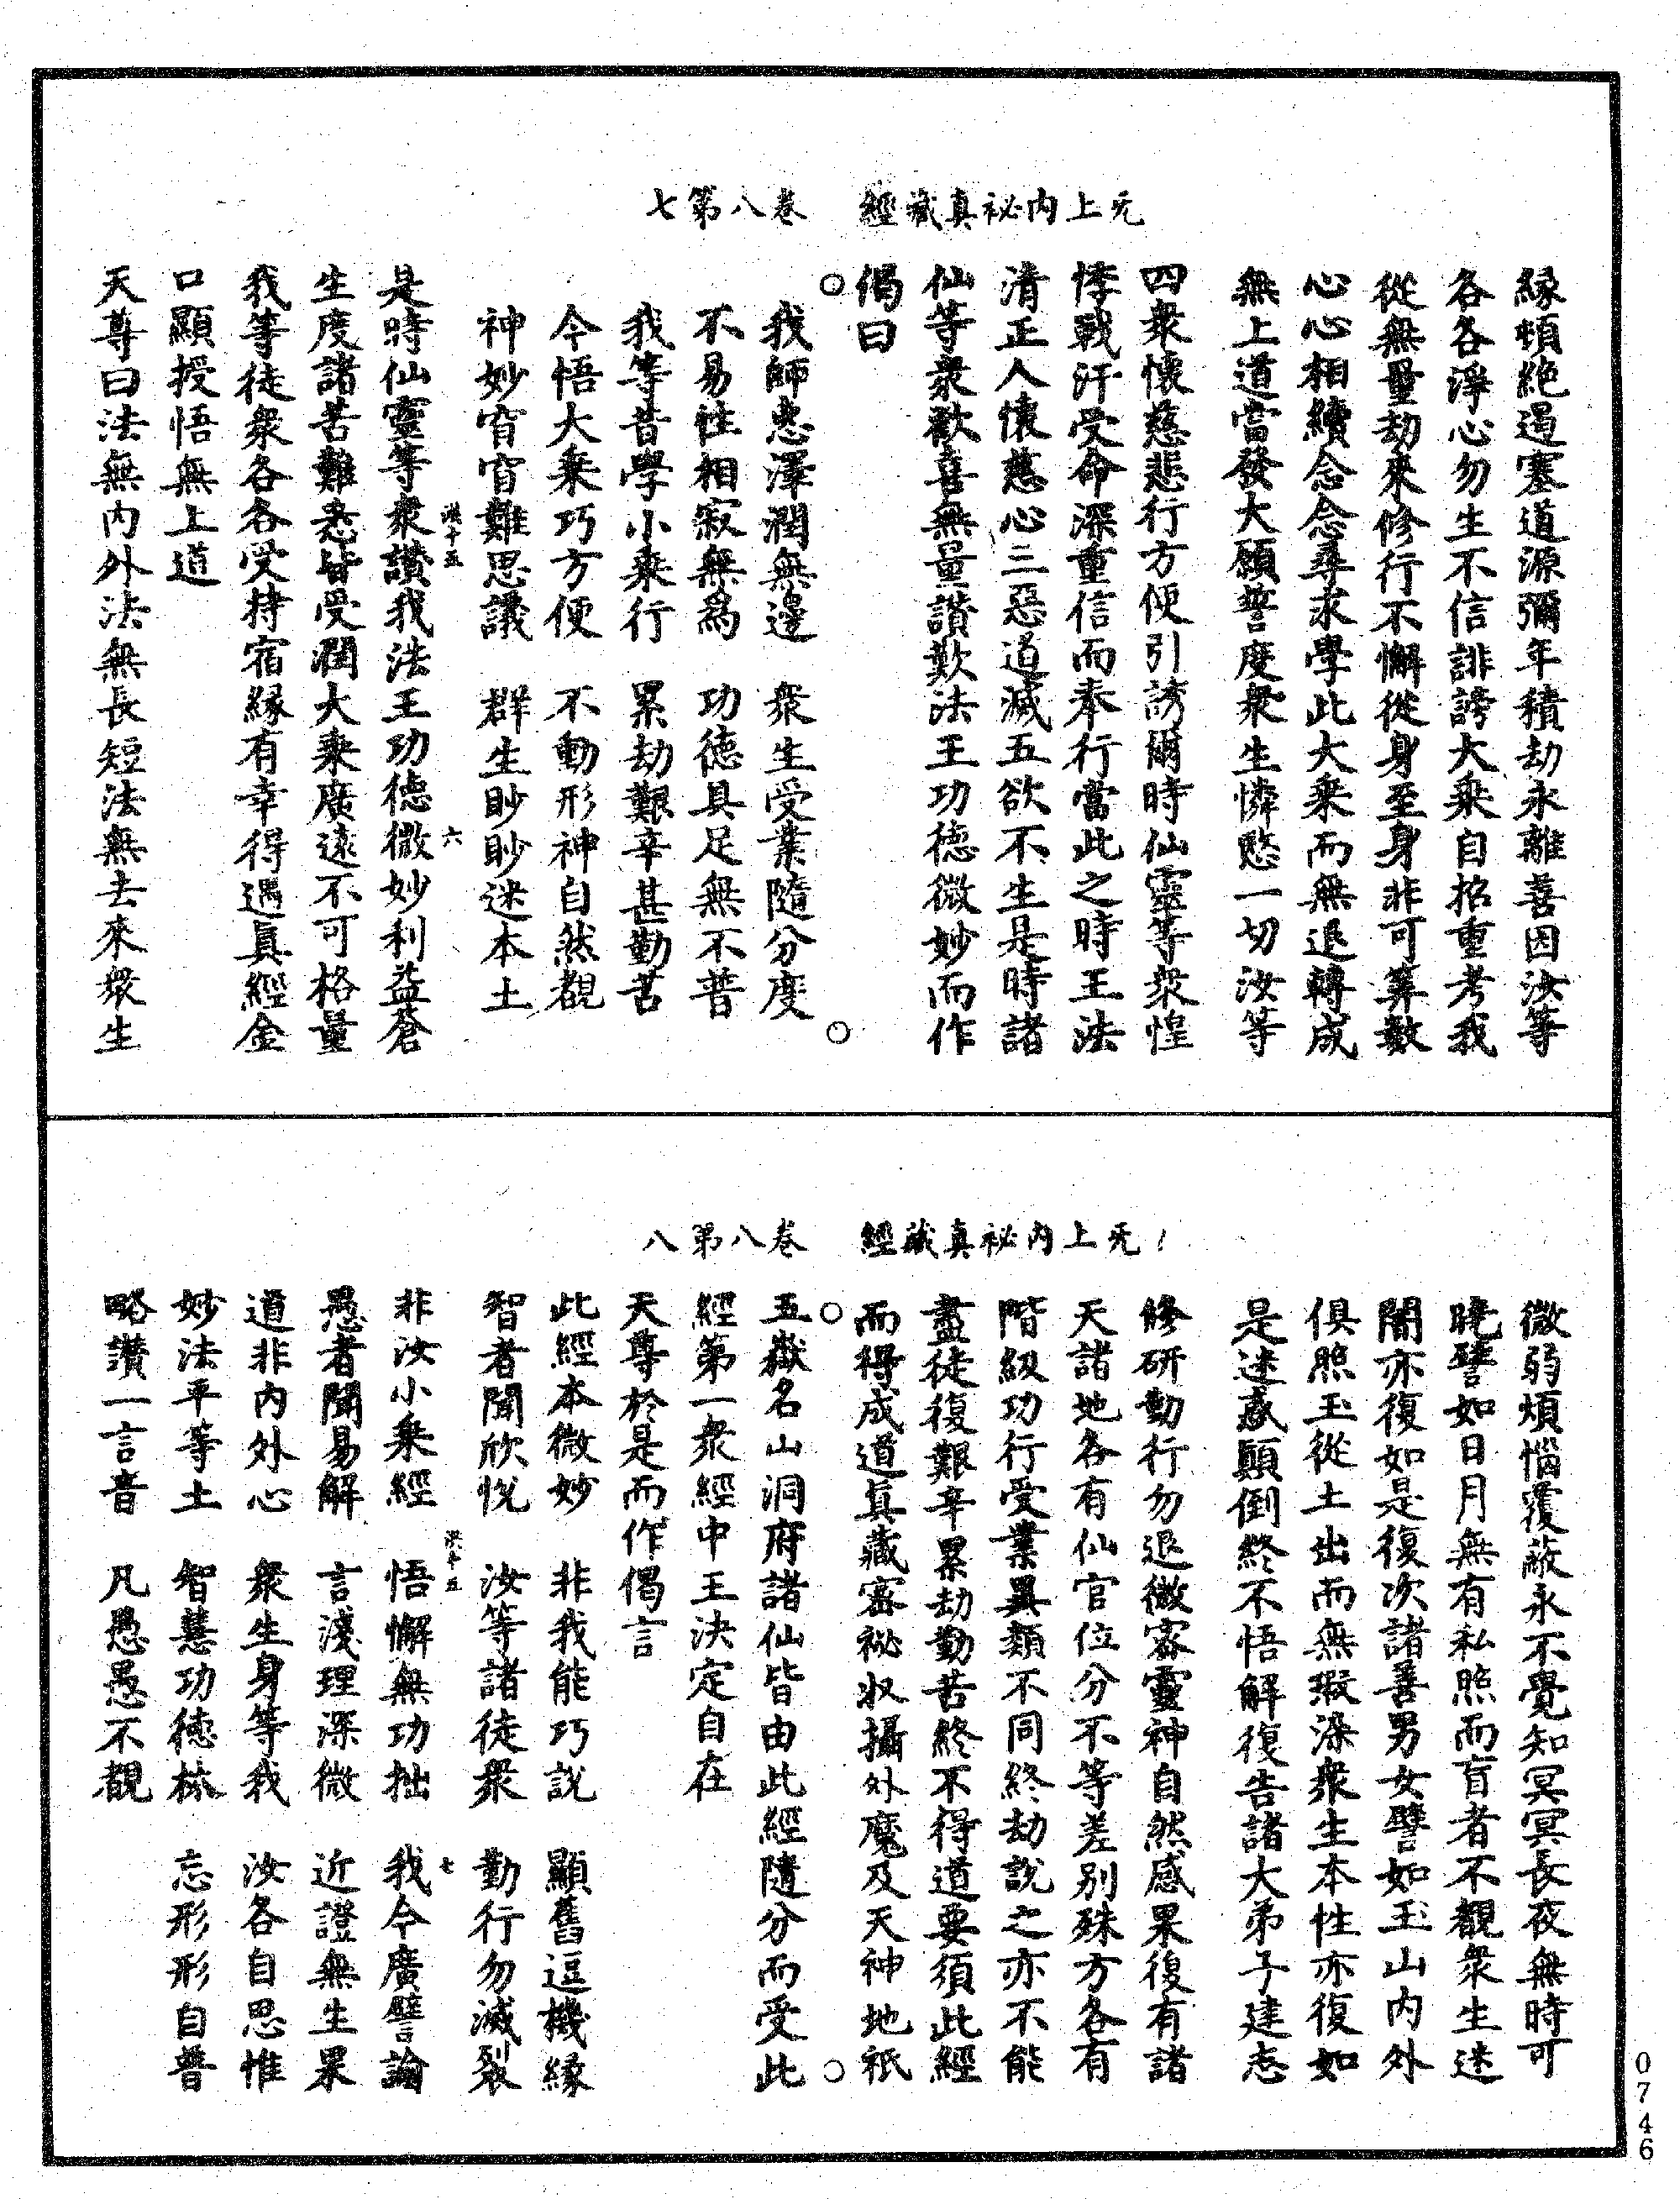 无上內祕真藏經　卷八第七
緣頓絕遏塞道源彌年積劫永離善因汝等
各各淨心勿生不信誹謗大乘自招重考我
從無量劫來修行不懈從身至身非可筭數
心心相續念念尋求學此大乘而無退轉成
無上道當發大願誓度衆生憐愍一切汝等
四衆懷慈悲行方便引誘爾時仙靈等衆惶
悸戰汗受命深重信而奉行當此之時王法
清正人懷慈心三惡道滅五欲不生是時諸
仙等衆歡喜無量讚歎法王功德微妙而作
偈曰
我師惠澤潤無邊　衆生受業隨分度
不易性相寂無為　功德具足無不普
我等昔學小乘行　累劫艱辛甚勤苦
今悟大乘巧方便　不動形神自然覩
神妙窅窅難思議　群生眇眇迷本土
洪十五　六
是時仙靈等衆讚我法王功德微妙利益蒼
生度諸苦難悉皆受潤大乘廣遠不可格量
我等徒衆各各受持宿緣有幸得遇真經金
口顯授悟無上道
天尊曰法無內外法無長短法無去來衆生
无上內祕真藏經　卷八第八
微弱煩惱覆蔽永不覺知冥冥長夜無時可
曉譬如日月無有私照而盲者不覩衆生迷
闇亦復如是復次諸善男女譬如玉山內外
俱照玉從土出而無瑕染衆生本性亦復如
是迷惑顛倒終不悟解復告諸大弟子建志
修研勤行勿退微密靈神自然感果復有諸
天諸地各有仙官位分不等差別殊方各有
階級功行受業異類不同終劫說之亦不能
盡徒復艱辛累劫勤苦終不得道要須此經
而得成道真藏密祕收攝外魔及天神地祇
五嶽名山洞府諸仙皆由此經隨分而受此
經第一衆經中王決定自在
天尊於是而作偈言
此經本微妙　非我能巧說　顯舊逗機緣
智者聞欣悅　汝等諸徒衆　勤行勿滅裂
洪十五　七
非汝小乘經　悟懈無功拙　我今廣譬論
愚者聞易解　言淺理深微　近證無生果
道非內外心　衆生身等我　汝各自思惟
妙法平等土　智慧功德林　忘形形自普
略讚一言音　凡愚愚不覩
0746